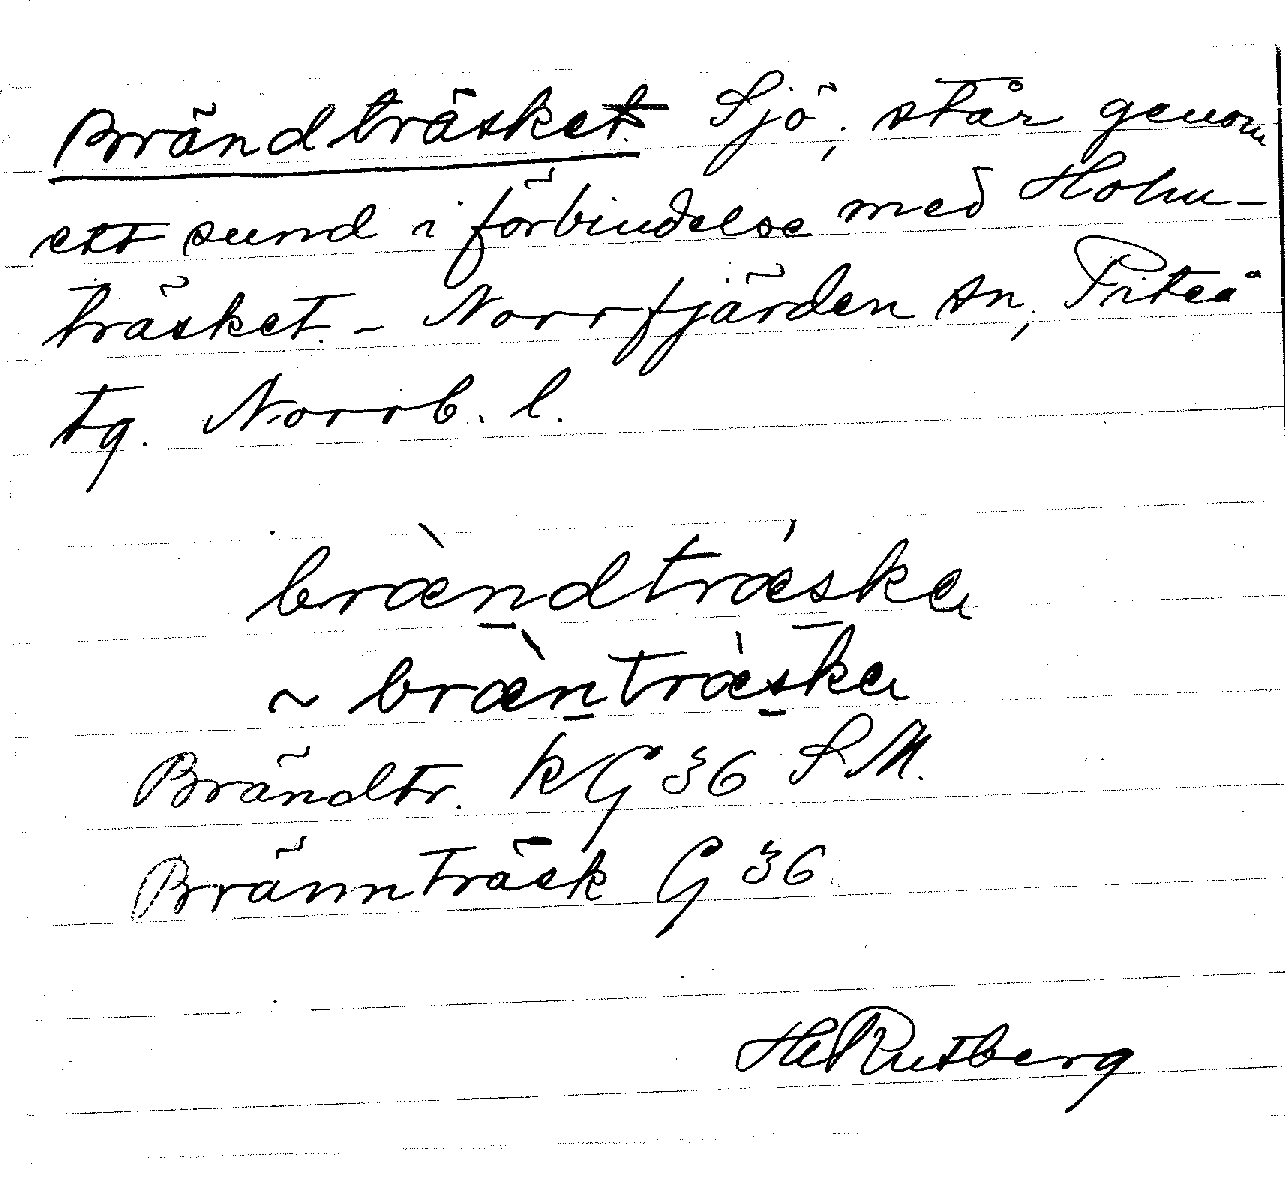 Brändträsket. Sjö, står genom
ett sund i förbindelse med Holm-
träsket. - Norrfjärden sn, Piteå
tg. Norrb. l.
brændtræska
~ bræntræska
Brändtr. kG 36 S.M.
Brännträsk G 36
HRutberg